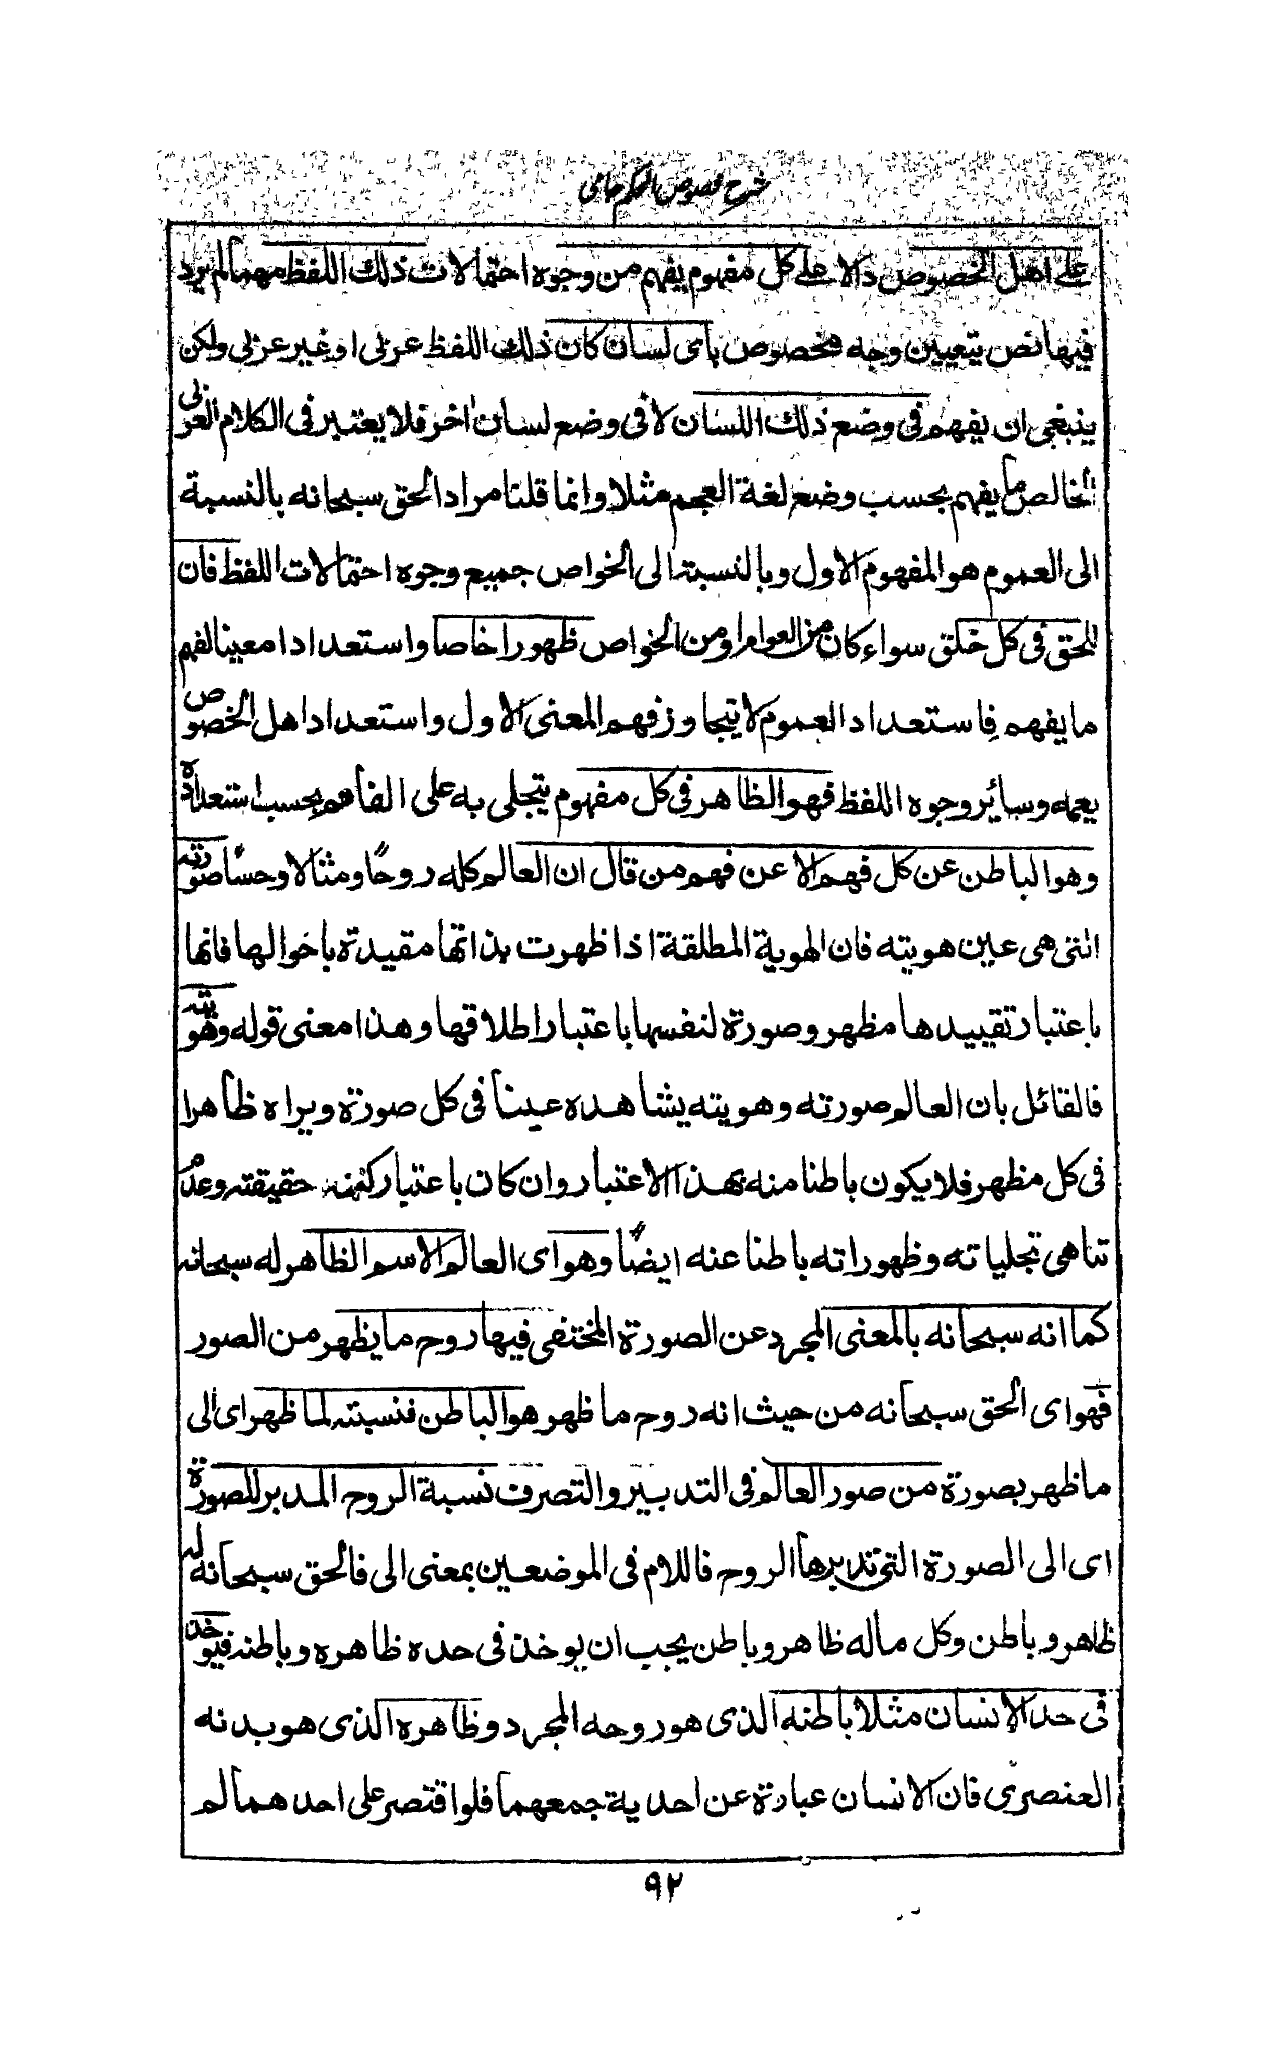 شرح فصوص الحكم جامى
على اهل الخصوص دالا على كل مفهوم يفهم من وجوه احتمالات ذلك اللفظ مهما لم يرد
فيها نص بتعيين وجه مخصوص باى لسان كان ذلك اللفظ عربى او غير عربى ولكن
ينبغى ان يفهم فى وضع ذلك اللسان لا فى وضع لسان اخر فلا يعتبر فى الكلام العربى
الخالص ما يفهم بحسب وضع لغة العجم مثلا وانما قلنا مراد الحق سبحانه بالنسبة
الى العموم هو المفهوم الاول وبالنسبة الى الخواص جميع وجوه احتمالات اللفظ فان
للحق فى كل خلق سواء كان من العوام او من الخواص ظهورا خاصا واستعدادا معينا لفهم
ما يفهم فاستعداد العموم لا يتجاوز فهم المعنى الاول واستعداد اهل الخصوص
يعمه وسائر وجوه اللفظ فهو الظاهر فى كل مفهوم يتجلى به على الفاهم بحسب استعداده
وهو الباطن عن كل فهم الا عن فهم من قال ان العالم كله روحًا ومثالا وحسًا صورته
التى هى عين هويته فان الهوية المطلقة اذا ظهرت بذاتها مقيدة باحوالها فانها
باعتبار تقييدها مظهر وصورة لنفسها باعتبار اطلاقها وهذا معنى قوله وهويته
فالقائل بان العالم صورته وهويته يشاهده عينا فى كل صورة ويراه ظاهرا
فى كل مظهر فلا يكون باطنا منه بهذا الاعتبار وان كان باعتبار كنه حقيقته وعدم
تناهى تجلياته وظهوراته باطنا عنه ايضًا وهو اى العالم الاسم الظاهر له سبحانه
كما انه سبحانه بالمعنى المجرد عن الصورة المختفى فيها روح ما يظهر من الصور
فهو اى الحق سبحانه من حيث انه روح ما ظهر هو الباطن فنسبته لما ظهر اى الى
ما ظهر بصورة من صور العالم فى التدبير والتصرف نسبة الروح المدبر للصورة
اى الى الصورة التى تدبرها الروح فاللام فى الموضعين بمعنى الى فالحق سبحانه له
ظاهر وباطن وكل ما له ظاهر وباطن يجب ان يوخذ فى حده ظاهره وباطنه فيوخذ
فى حد الانسان مثلا باطنه الذى هو روحه المجرد وظاهره الذى هو بدنه
العنصرى فان الانسان عبارة عن احدية جمعهما فلو اقتصر على احدهما لم
٩٢